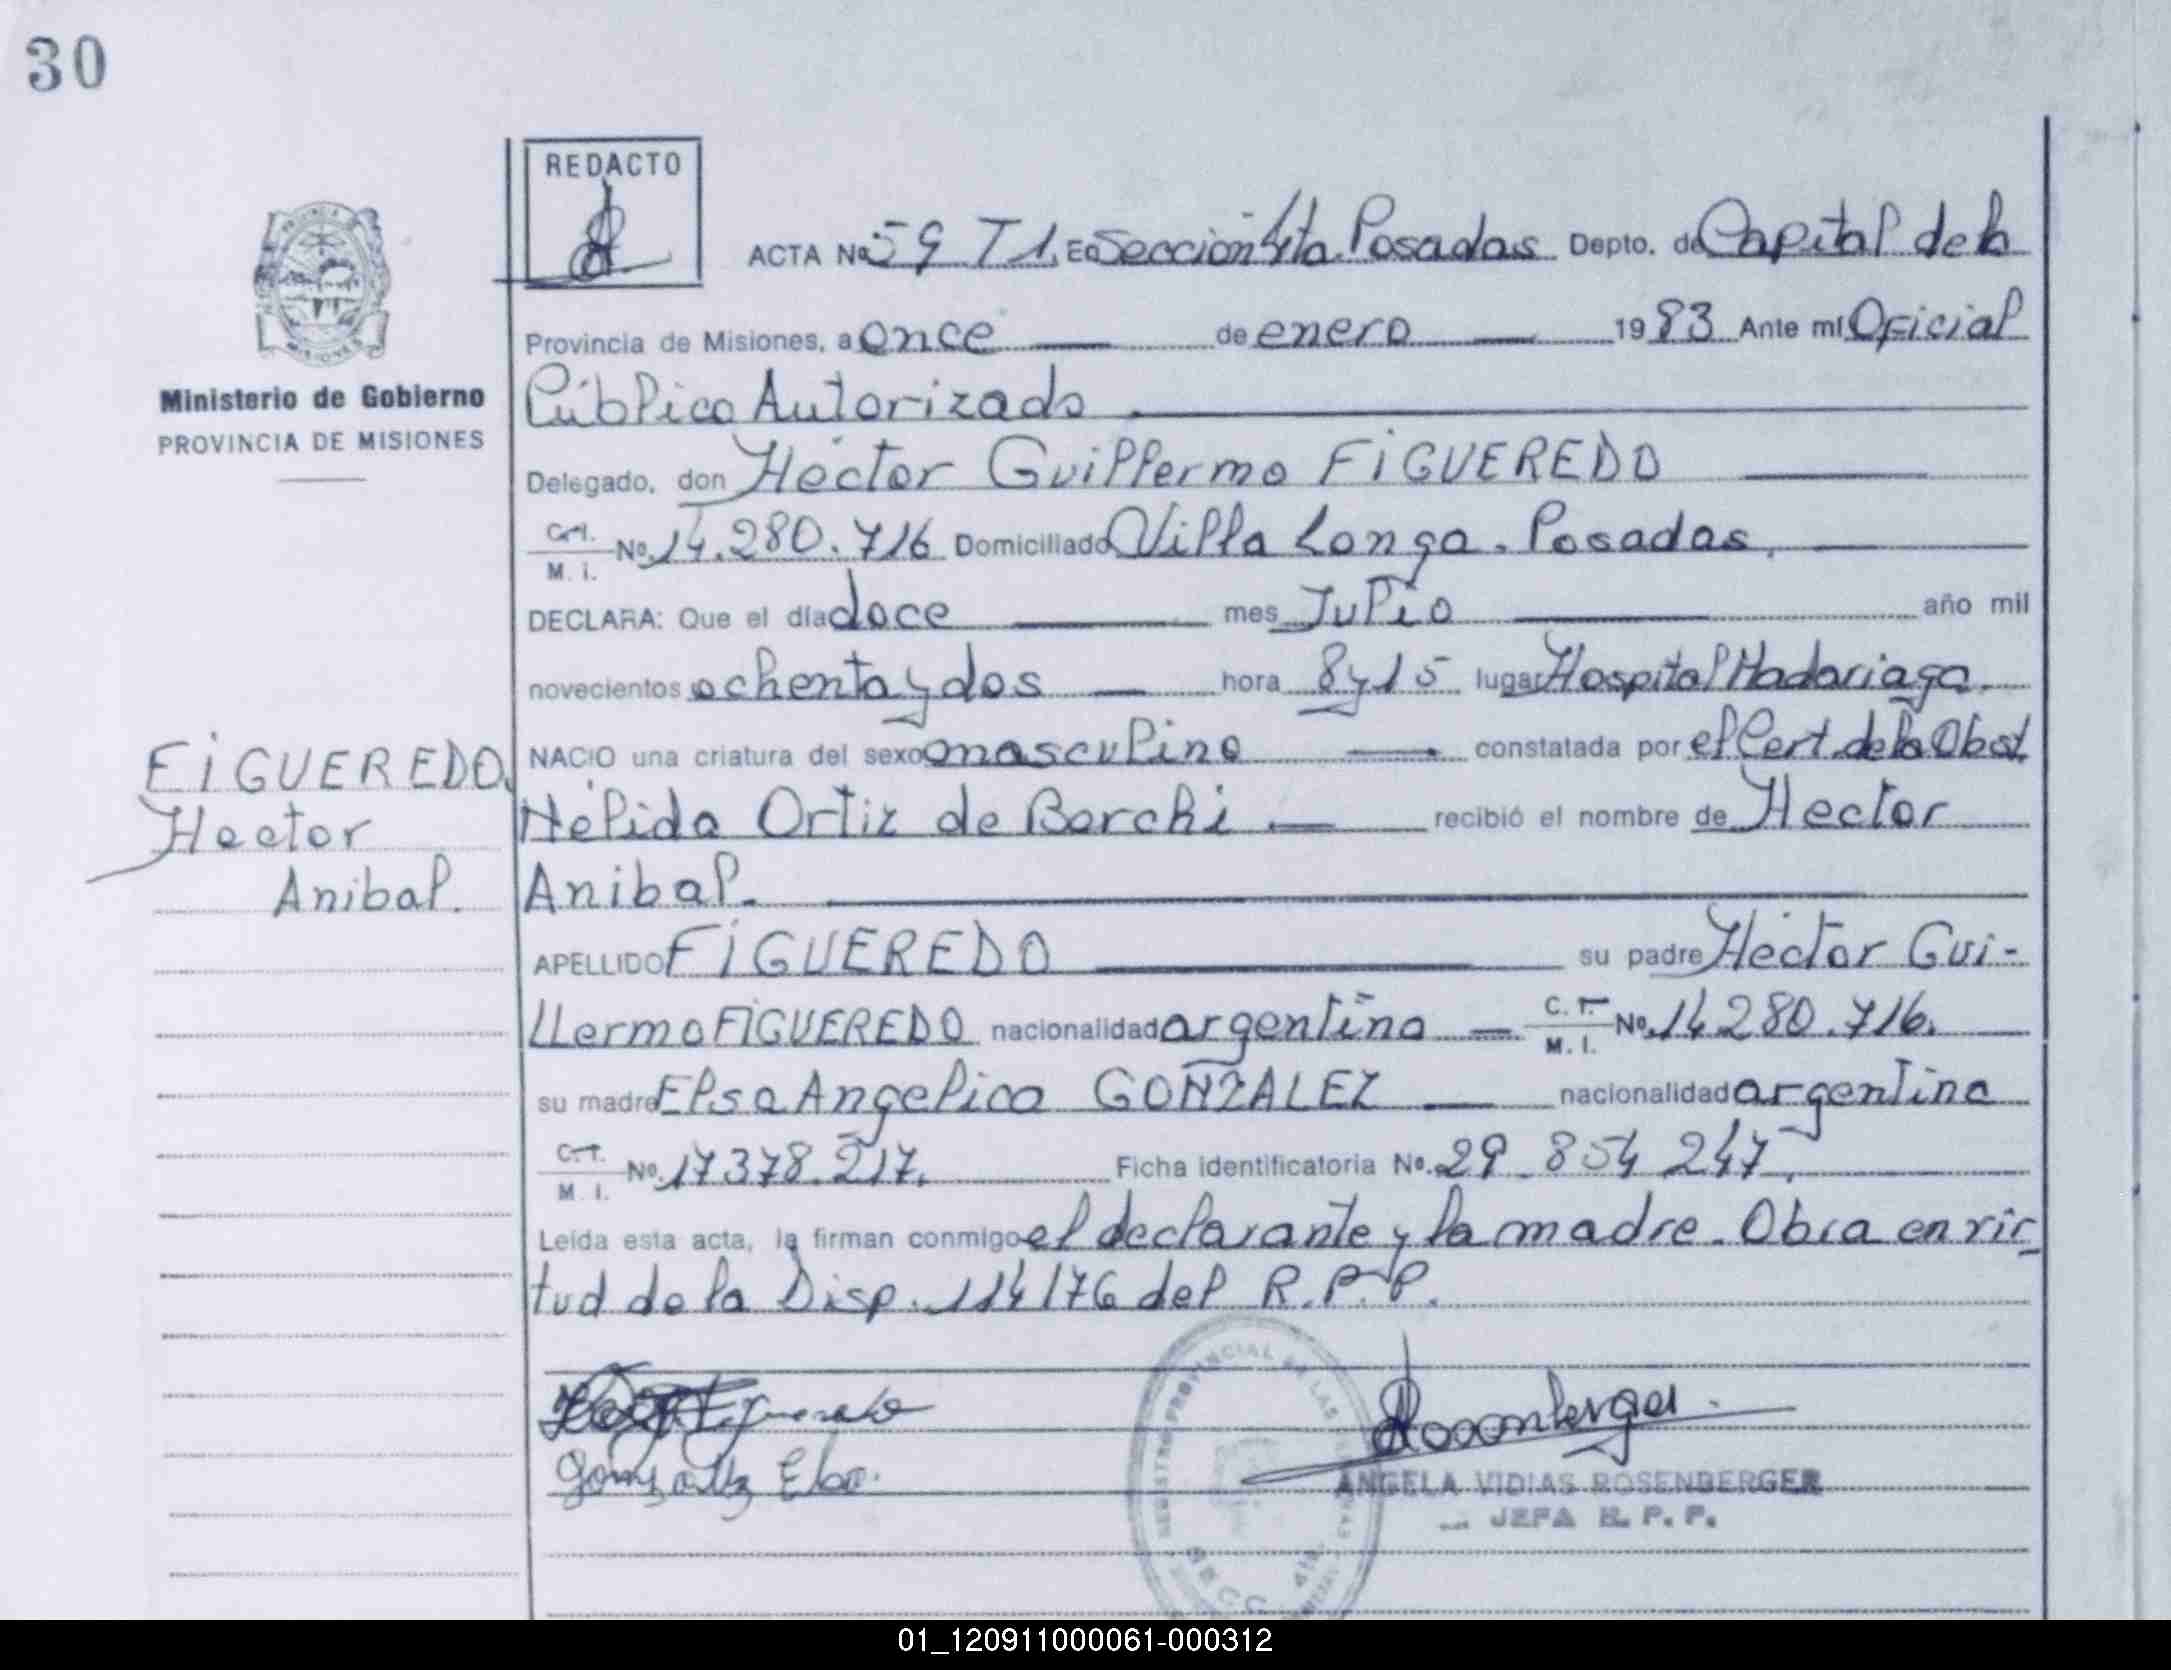 30
REDACTO
ACTA No 59 T1. En Sección 4ta. Posadas Depto. de Capital de la
Provincia de Misiones, a once de enero 1983 Ante mí Oficial
Público Autorizado
Ministerio de Gobierno
PROVINCIA DE MISIONES
Delegado, don Héctor Guillermo FIGUEREDO
C.I. M. I. No. 14.280.716 Domiciliado Villa Longa. Posadas.
DECLARA: Que el día doce mes Julio año mil
novecientos ochenta y dos hora 8 y 15 lugar Hospital Madariaga.
NACIO una criatura del sexo masculino constatada por el Cert. de la Obst.
FIGUEREDO.
Hector
Anibal.
Nélida Ortiz de Borchi recibió el nombre de Hector
Anibal.
APELLIDO FIGUEREDO su padre Héctor Gui-
llermo FIGUEREDO nacionalidad argentina M. I. No. 14 280.716.
su madre Elsa Angelica GONZALEZ nacionalidad argentina
M. I. No. 17378.217. Ficha identificatoria No. 29 854 247.
Leída esta acta, la firman conmigo el declarante y la madre. Obra en vir-
tud de la Disp. 114/76 del R.P.P.
Figueredo
Gonzalez Elsa.
Rosenberger
ANGELA VIDIAS ROSENBERGER
JEFA R. P. P.
REGISTRO PROVINCIAL DE LAS
SECC 4ta.
01_120911000061-000312